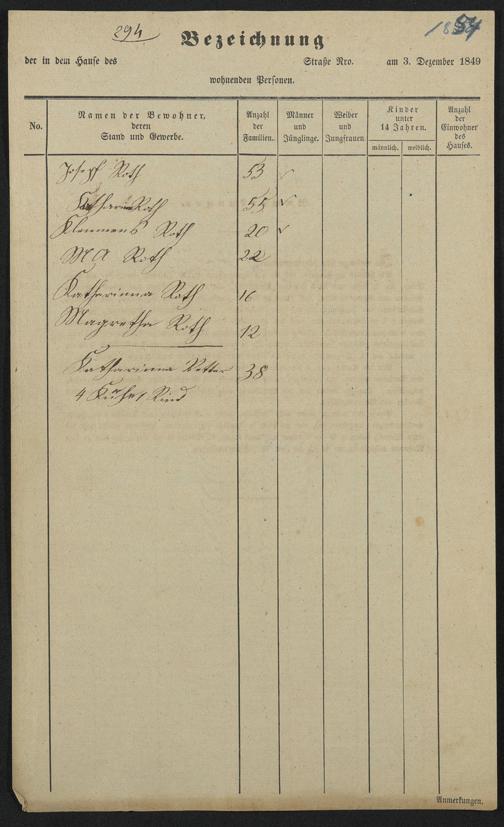 294
Bezeichnung
der in dem Hause des Straße Nro. am 3. Dezember 1849
wohnenden Personen.
No.
Namen der Bewohner,
deren
Stand und Gewerbe.
Anzahl
der
Familien.
Männer
und
Jünglinge.
Weiber
und
Jungfrauen
Kinder
unter
14 Jahren.
männlich. weiblich.
Anzahl
der
Einwohner
des
Hauses.
Joseph Roth 53
Katharina Roth 55
Klemens Roth 20
M A Roth 22
Katharinna Roth 16
Magretha Roth 12
Katharinna 38
4 Kühe 1 Rind
Anmerkungen.